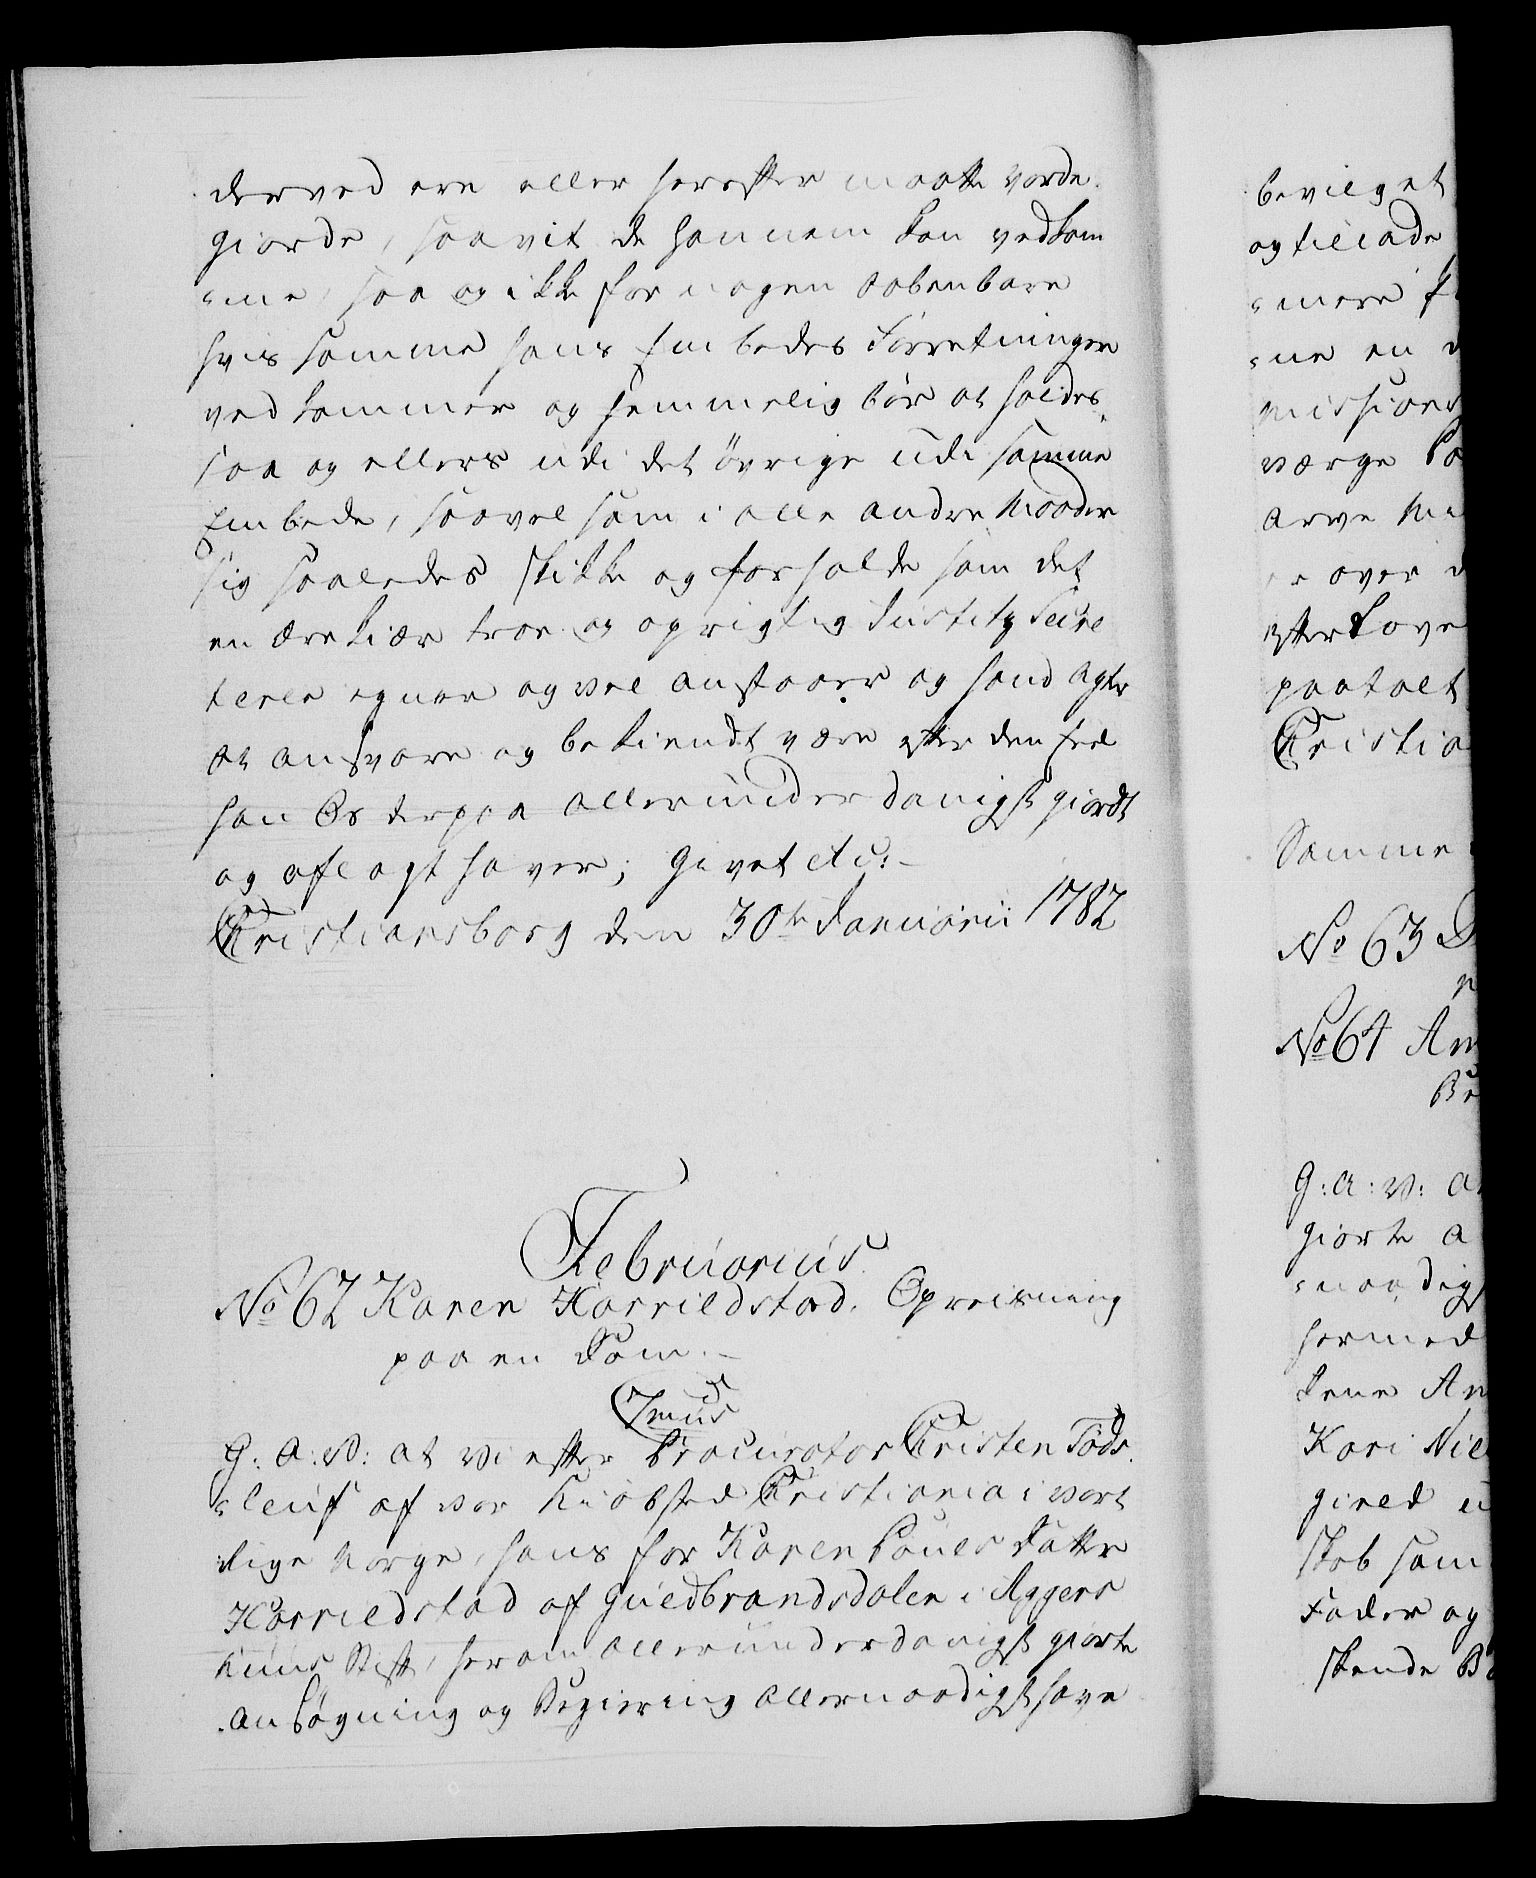 derved ere eller herefter maatte vorde
giorde, saavit de hannem kan vedkom
=me, saa og ikke for nogen aabenbare
hvis samme hans Embedes Forretninger
vedkommer og hemmelig bør at holdes,
saa og ellers udi det øvrige udi samme
Embede, saavel som i alle andre Maader
sig saaledes skikke og forholde som det
en ærekiær troe og oprigtig Justitz Secre
terer egner og vel anstaaer og hand agter
at ansvare og bekiendt være efter den Eed
han Os derpaa allerunderdanigst giordt
og aflagt haver; Givet etc:
Christiansborg den 30te Januarii 1782
Februarius
No 62 Karen Harrildstad. Opreisning
paa en Dom.
Imus
G: A: V: at Vi efter Procurator Christen Tøds
=leuf af vor Kiøbsted Christiania i vort
Rige Norge, hans for Karen Povels Datter
Harrildstad af Guldbrandsdalen i Agger
huus Stift, herom allerunderdanigst giorte
Ansøgning og Begiering allernaadigst have
bevilget
og tillade
=mere
=ne en
missions
værge
arve
over
efter Love
paatalt
Christia
Samme
No 63
No 64 An
G: A: V: a
giorte A
=naadigs
hermed
Kari Niel
gired
skab som
Fader og